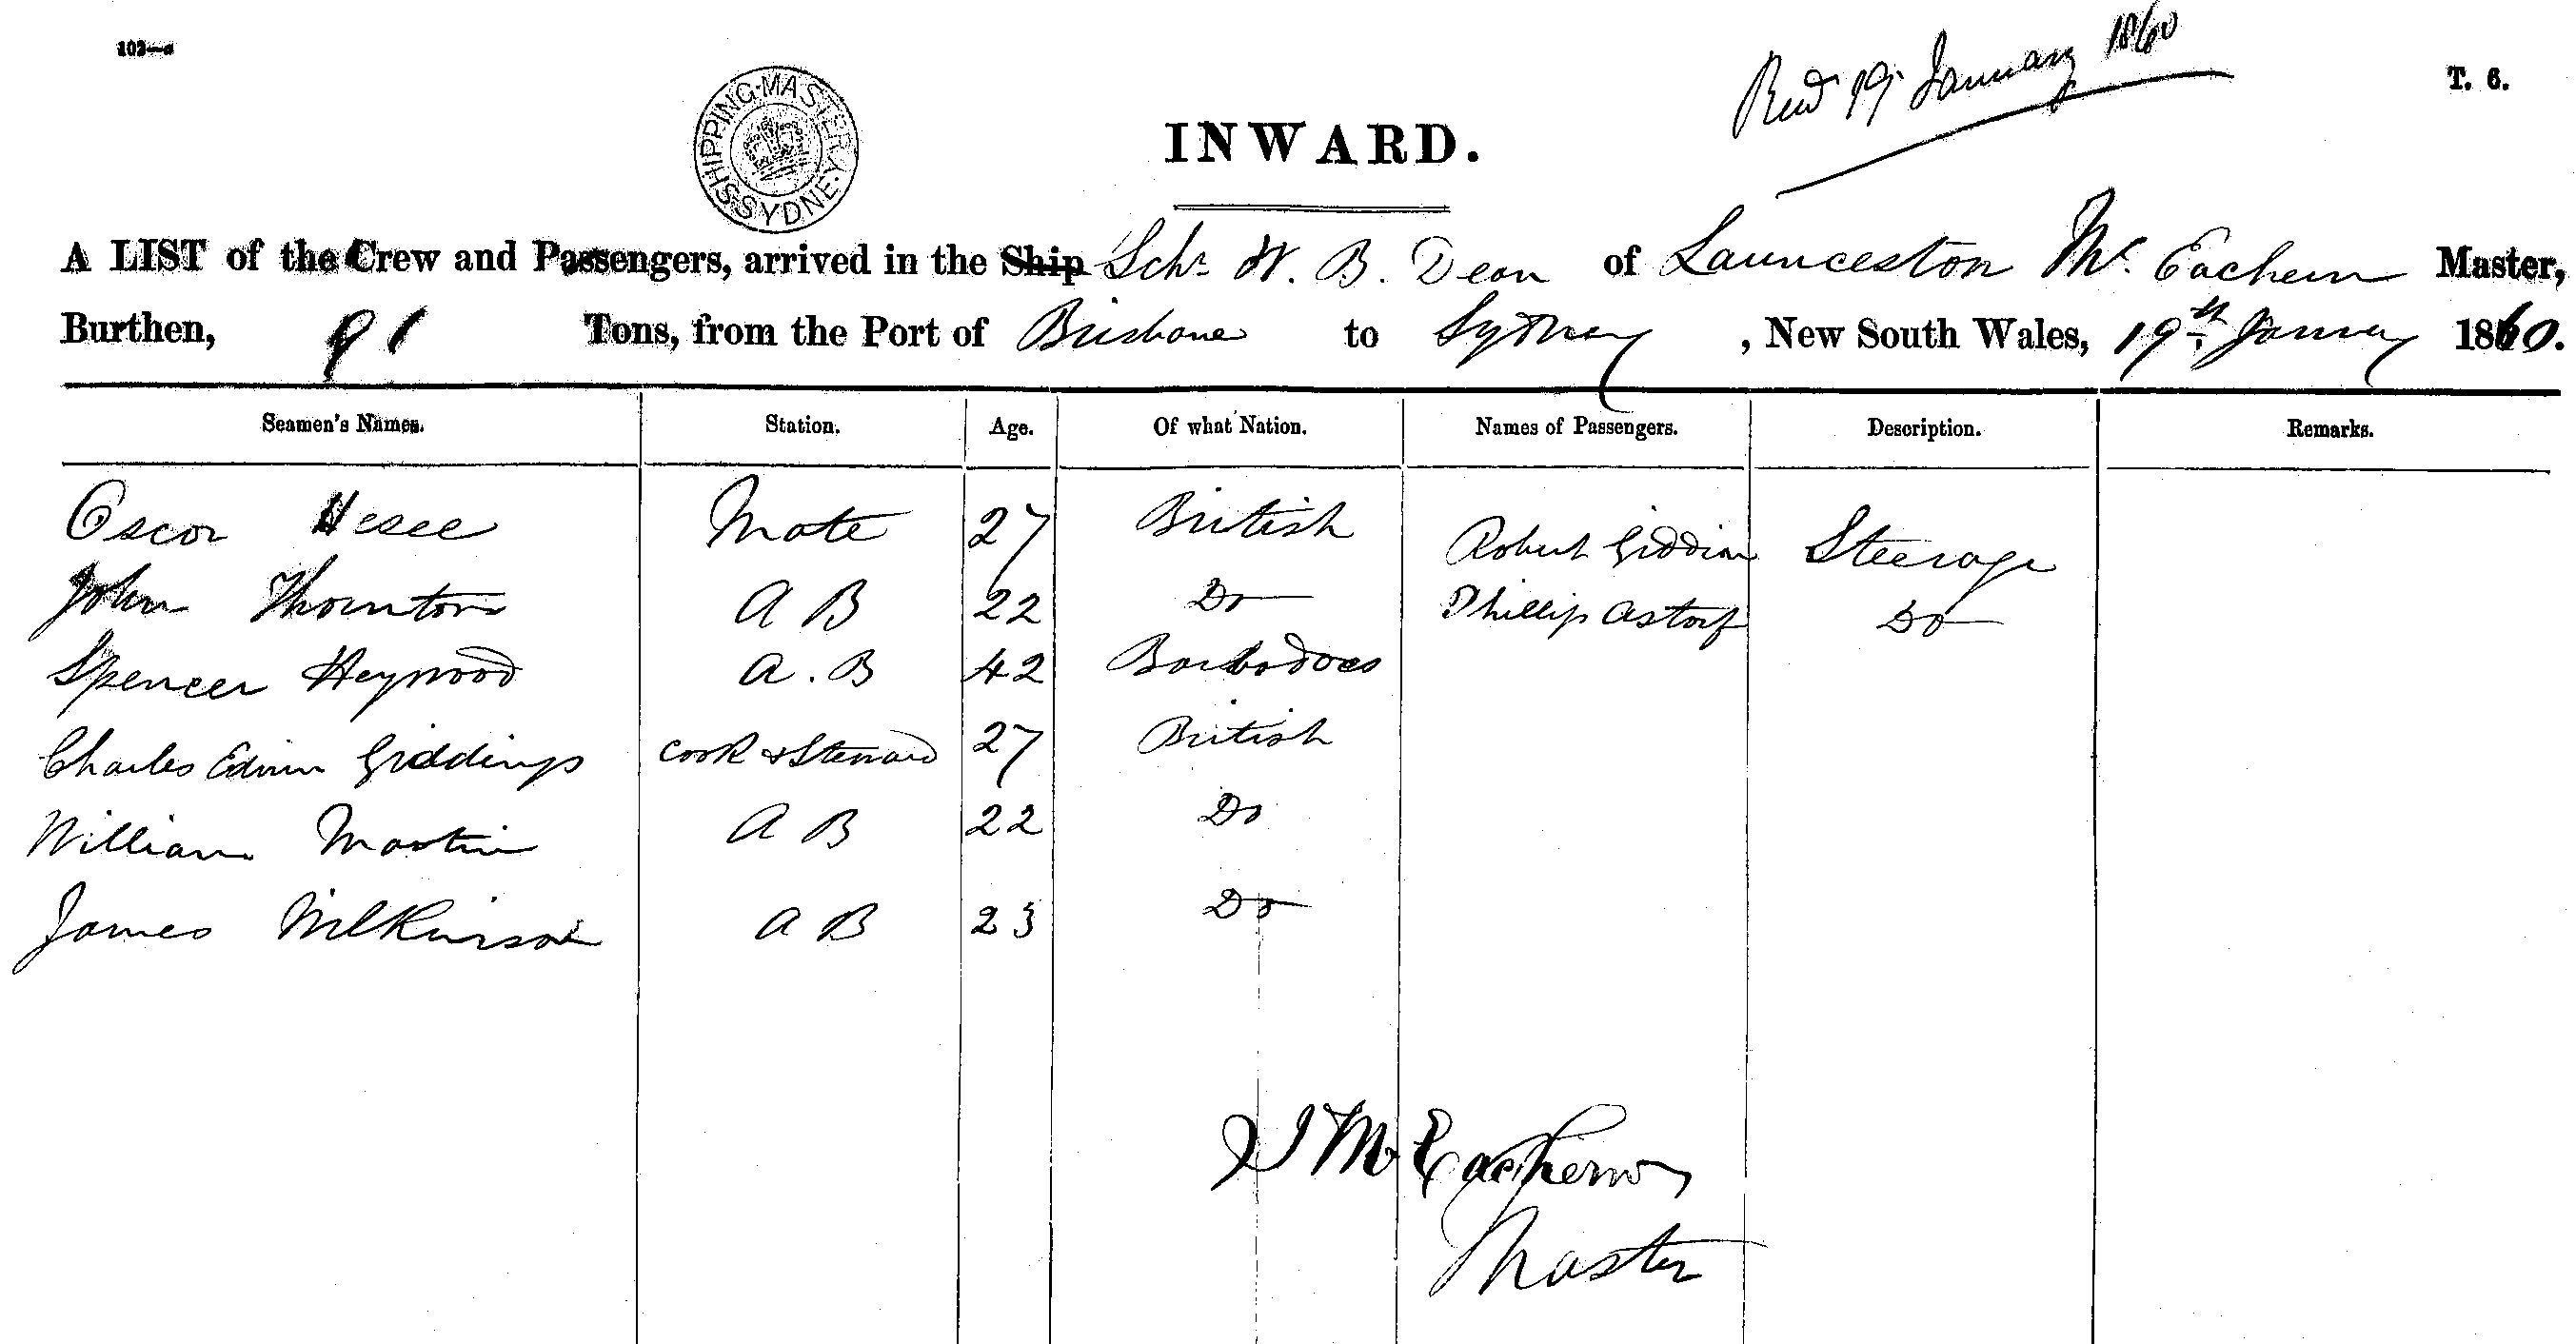 103—a
Recd 19 January 1860
T. 6.
SHIPPING·MASTER SYDNEY
INWARD.
A LIST of the Crew and Passengers, arrived in the Ship Schr W. B. Dean of Launceston Mc Eachern Master,
Burthen, 91 Tons, from the Port of Brisbane to Sydney, New South Wales, 19th January 1860.
Seamen's Names. Station. Age. Of what Nation. Names of Passengers. Description. Remarks.
Oscar Mate 27 British Robert Steerage
John Thornton A B 22 Do Phillip Do
Spencer Heywood A. B 42 Barbadoes
Charles Edwin Giddings Cook & Steward 27 British
William Martin A B 22 Do
James Wilkinson A B 23 Do
McEachern
Master